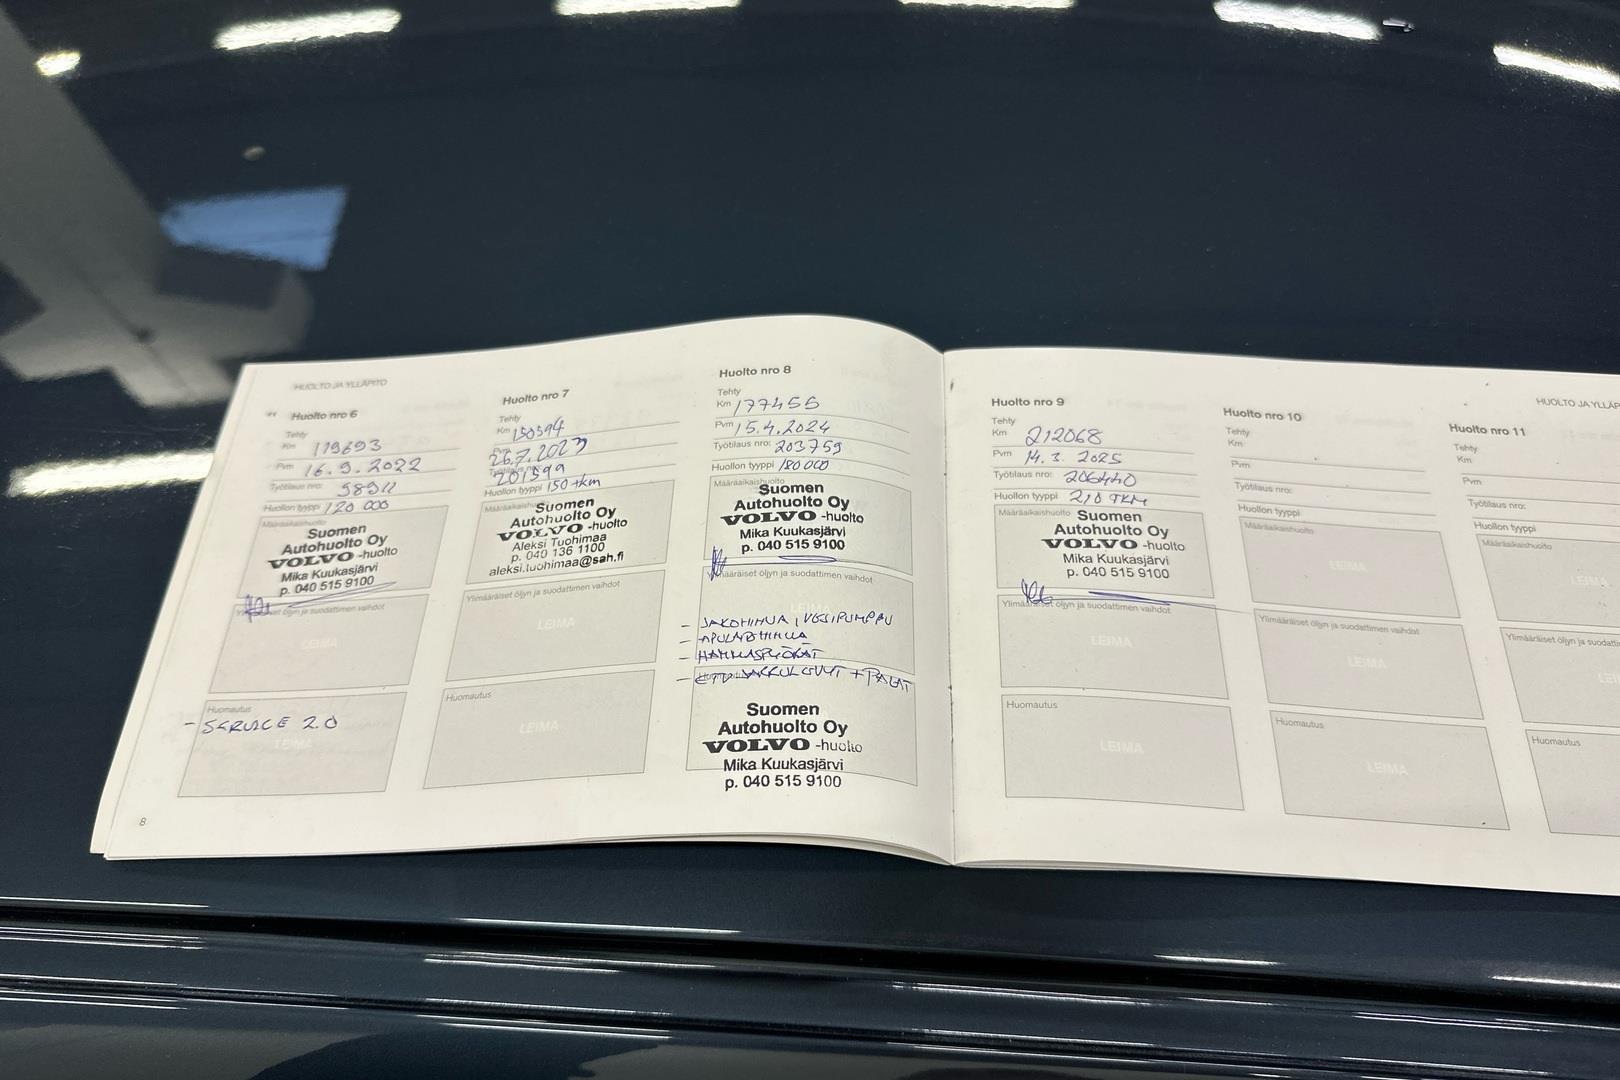 HUOLTO JA YLLÄPITO
Huolto nro 6
Tehty
Km 119693
Pvm 16.9.2022
Työtilaus nro: 98911
Huollon tyyppi 120 000
Määräaikaishuolto
Suomen
Autohuolto Oy
VOLVO -huolto
Mika Kuukasjärvi
p. 040 515 9100
Ylimääräiset öljyn ja suodattimen vaihdot
LEIMA
Huomautus
- SERVICE 2.0
LEIMA
8
Huolto nro 7
Tehty
Km 150594
Pvm 26.7.2023
Työtilaus nro: 201599
Huollon tyyppi 150 tkm
Määräaikaishuolto
Suomen
Autohuolto Oy
VOLVO -huolto
Aleksi Tuohimaa
p. 040 136 1100
aleksi.tuohimaa@sah.fi
LEIMA
Huomautus
LEIMA
Huolto nro 8
Tehty
Km 177455
Pvm 15.4.2024
Työtilaus nro: 203759
Huollon tyyppi 180 000
Määräaikaishuolto
Suomen
Autohuolto Oy
VOLVO -huolto
Mika Kuukasjärvi
p. 040 515 9100
Ylimääräiset öljyn ja suodattimen vaihdot
LEIMA
- JAKOHIHNA, VESIPUMPPU
- APULAITEHIHNA
- HAMMASPYÖRÄT
- ETU JARRULEVYT + PALAT
Suomen
Autohuolto Oy
VOLVO -huolto
Mika Kuukasjärvi
p. 040 515 9100
Huolto nro 9
Tehty
Km 212068
Pvm 14.3.2025
Työtilaus nro: 206440
Huollon tyyppi 210 TKM
Määräaikaishuolto
Suomen
Autohuolto Oy
VOLVO -huolto
Mika Kuukasjärvi
p. 040 515 9100
Ylimääräiset öljyn ja suodattimen vaihdot
LEIMA
Huomautus
LEIMA
Huolto nro 10
Tehty
Km
Pvm
Työtilaus nro:
Huollon tyyppi
Määräaikaishuolto
LEIMA
Ylimääräiset öljyn ja suodattimen vaihdot
LEIMA
Huomautus
LEIMA
HUOLTO JA YLLÄP
Huolto nro 11
Tehty
Km
Pvm
Työtilaus nro:
Huollon tyyppi
Määräaikaishuolto
LEIMA
Ylimääräiset öljyn ja suodattim
LEI
Huomautus